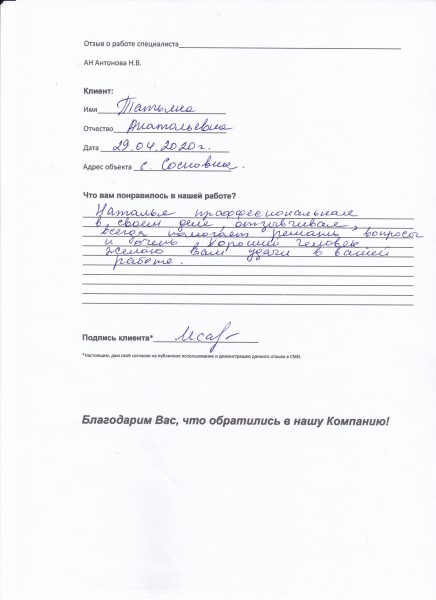 Отзыв о работе специалиста
АН Антонова Н.В.
Клиент:
Имя Татьяна
Отчество Анатольевна
Дата 29.04.2020 г.
Адрес объекта с. Сосновка.
Что вам понравилось в нашей работе?
Наталья профессиональная
в своем деле, отзывчивая,
всегда помогает решать вопросы
и очень хороший человек
желаю Вам удачи в вашей
работе.
Подпись клиента*
*Настоящим, даю своё согласие на публичное использование и демонстрацию данного отзыва в СМИ.
Благодарим Вас, что обратились в нашу Компанию!